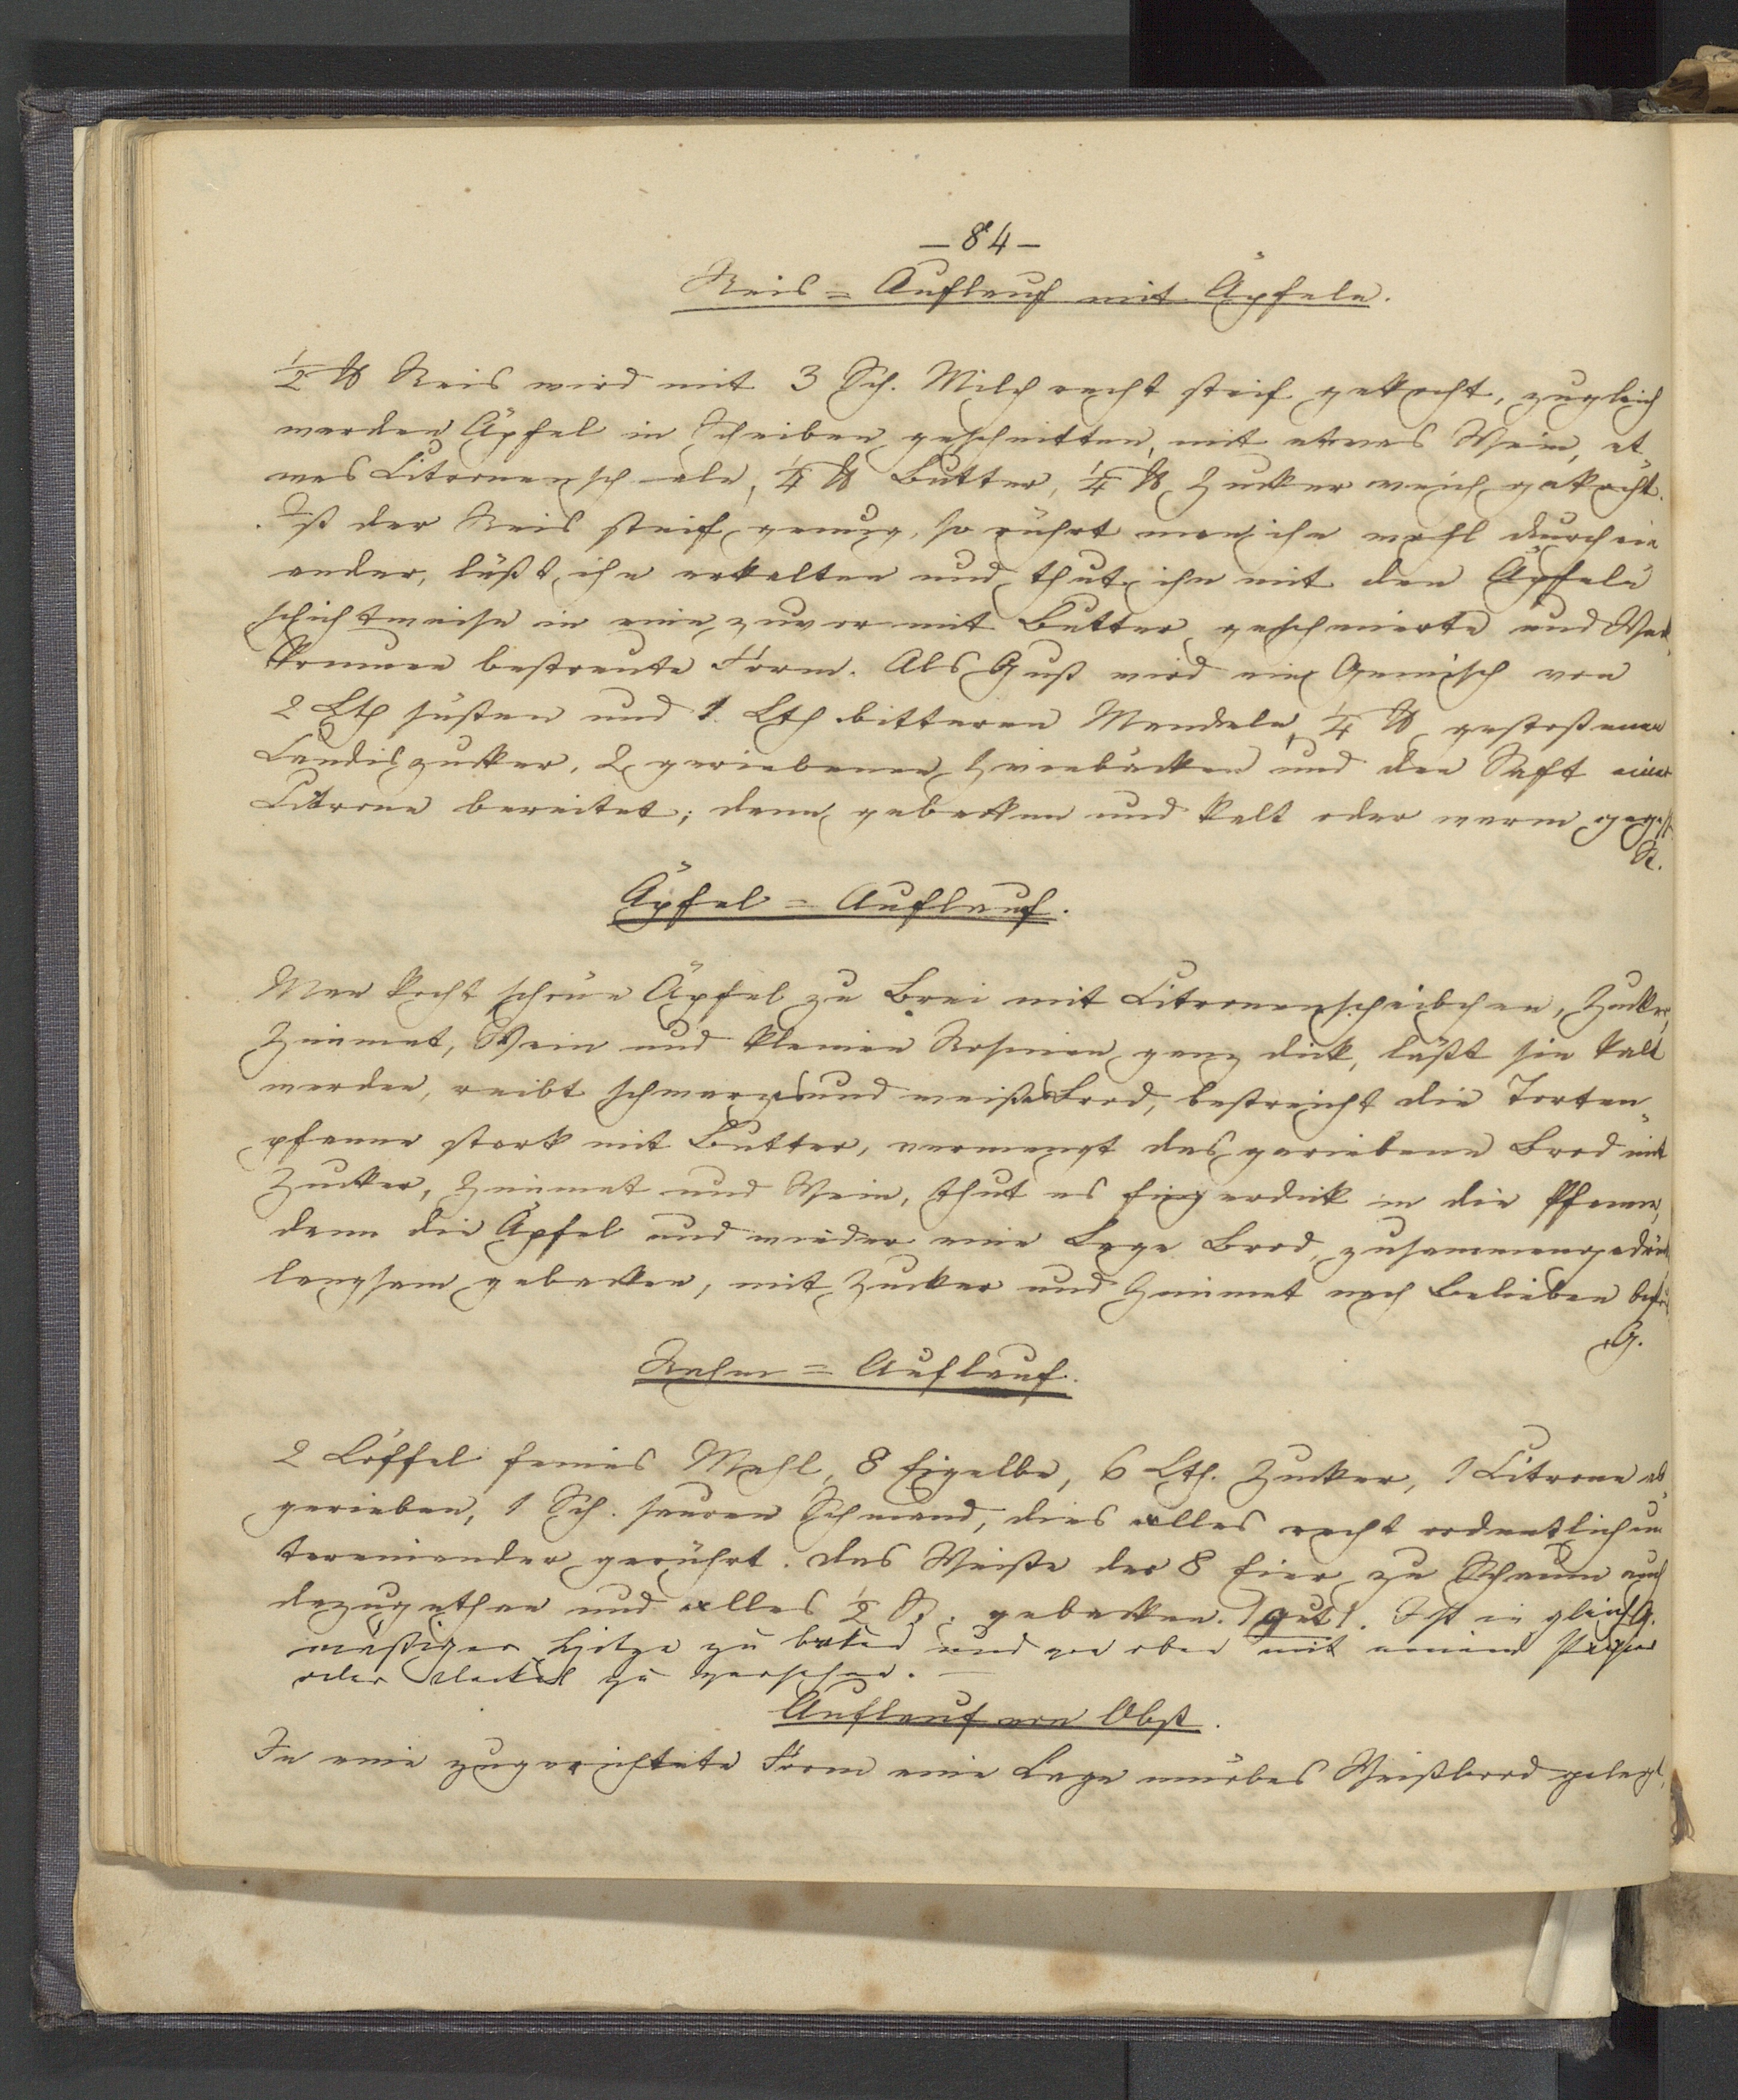 — 84 —
Reis = Auflauf mit Äpfeln.
½ ℔ Reis wird mit 3 Sch. Milch recht steif gekocht, zugleich
werden Äpfel in Scheiben geschnitten, mit etwas Wein, et
was Citronenschale, ¼ ℔ Butter, ¼ ℔ Zucker weich gekocht.
Ist der Reis steif genug, so rührt man ihn wohl durch ein
ander, läßt ihn erkalten und thut ihn mit den Äpfeln
schichtweise in eine zuvor mit Butter geschmierte und Weck
krumen bestreute Form. Als Guß wird ein Gemisch von
2 Lth süßen und 1 Lth bitteren Mandeln, ¼ ℔ gestoßenen
Candiszucker, 2 geriebenen Zwiebäcken und den Saft einer
Citrone bereitet; dann gebacken und kalt oder warm
R.
Äpfel = Auflauf.
Man kocht schöne Äpfel zu Brei mit Citronenscheibchen, Zucker,
Zimmet, Wein und kleinen Rosinen ganz dick, läßt sie kalt
werden, reibt schwarzes und weißes Brod, bestreicht die Torten-
pfanne stark mit Butter, vermengt das geriebene Brod mit
Zucker, Zimmet und Wein, thut es fingerdick in die Pfanne,
dann die Äpfel und wieder eine Lage Brod, zusammengedrückt
langsam gebacken, mit Zucker und Zimmet nach Belieben
G.
Rahm = Auflauf.
2 Löffel feines Mehl, 8 Eigelbe, 6 Lth. Zucker, 1 Citrone ab
gerieben, 1 Sch. sauren Schmand, dies alles recht ordentlich un
tereinander gerührt. das Weiße der 8 Eier zu Schaum auch
dazugethan und alles ½ S. gebacken. (gut). Ist in gleich G.
mäßiger Hitze zu backen und oben mit einem Papier
oder Deckel zu versehen. —
Auflauf von Obst.
In eine zugerichtete Form eine Lage mürbes Weißbrod gelegt,